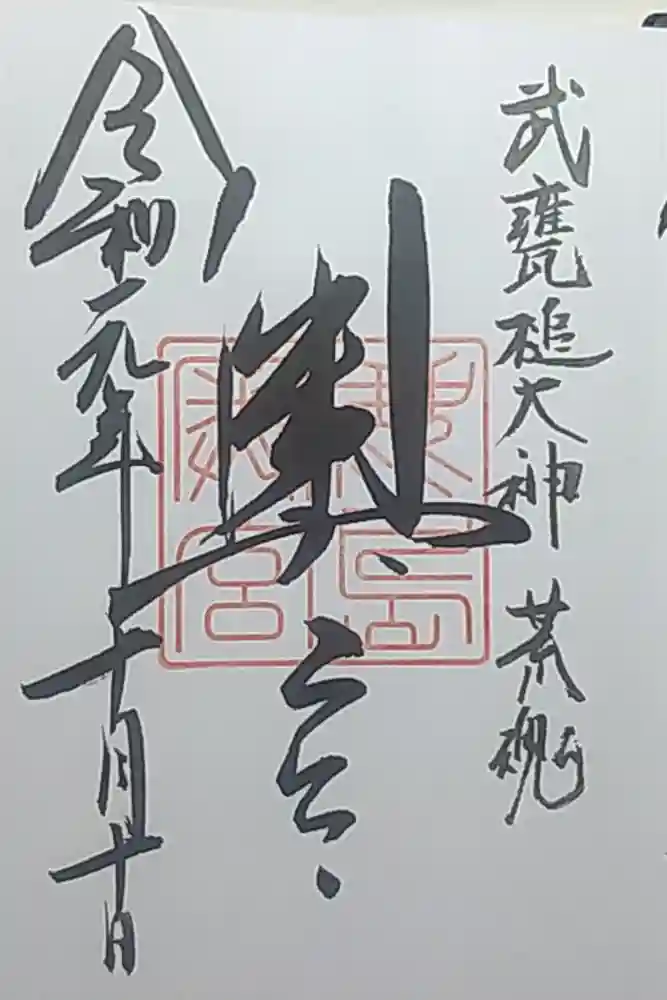 武甕槌大神 荒魂
奥宮
令和元年十月十日